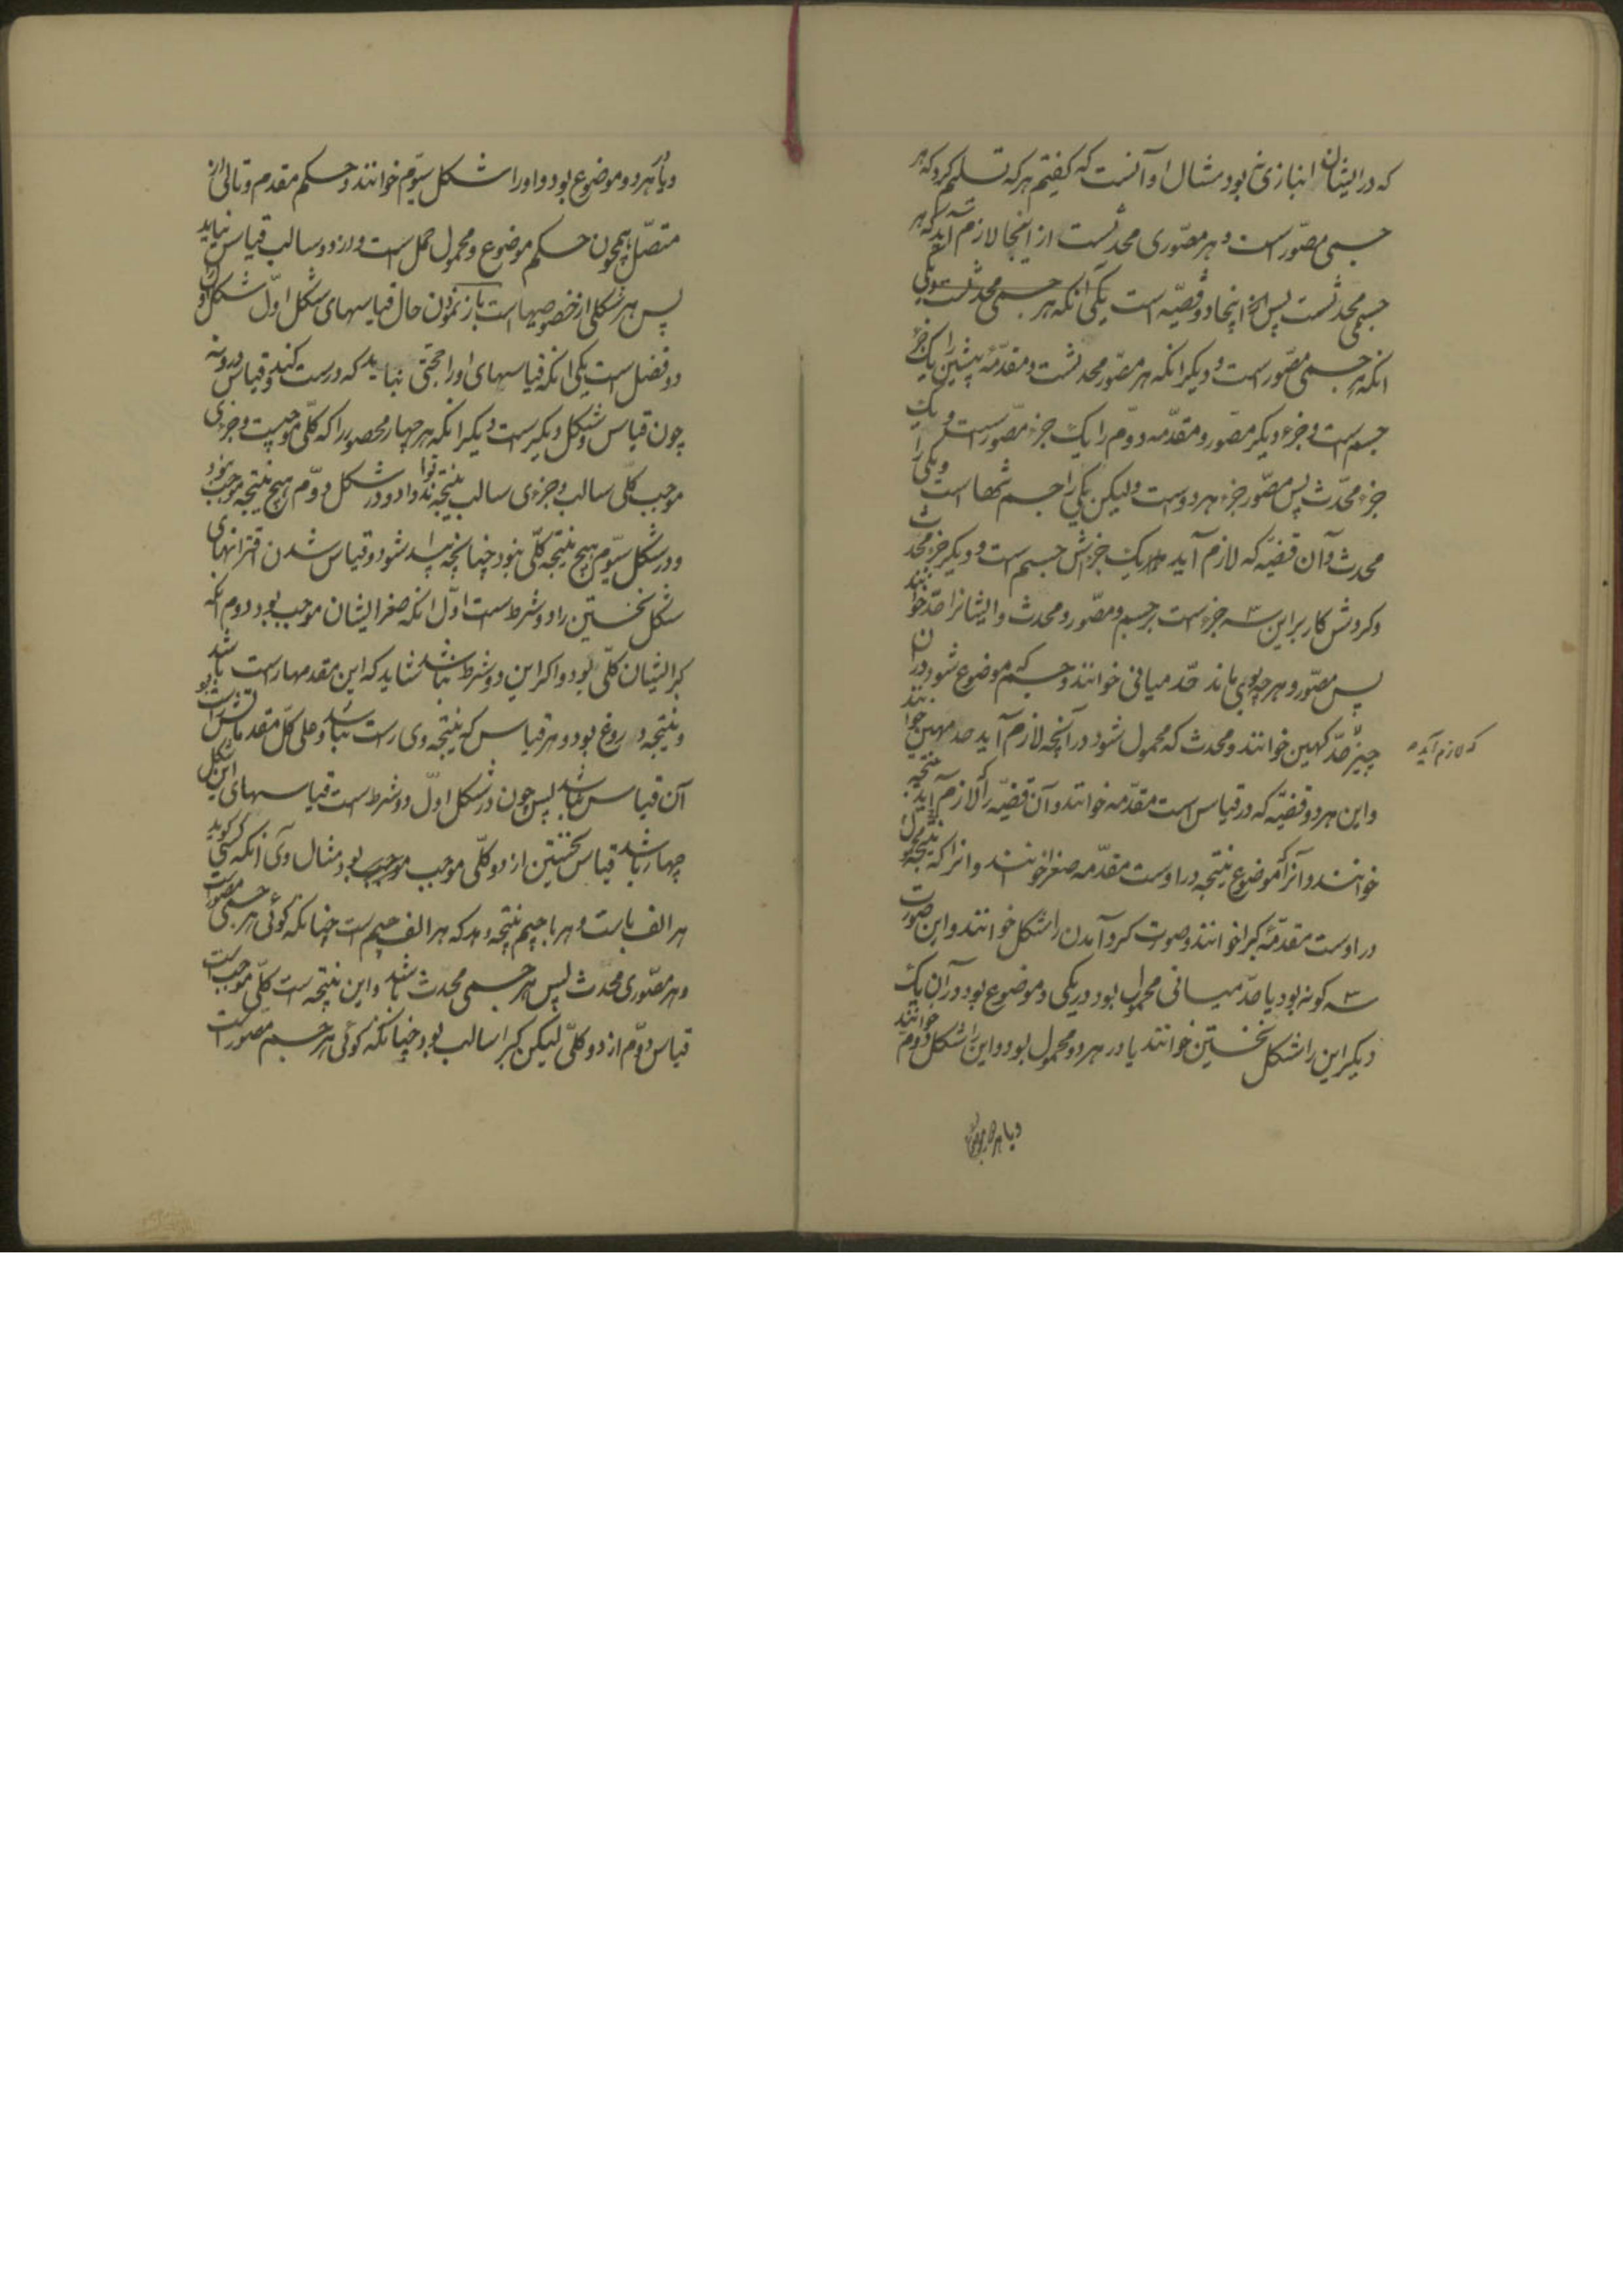 که در ایشان انبازی نبود مثال او آنست که کفتیم هرکه تسلیم کرد که هر
جسمی مصوّر است و هر مصوّری محدثست از اینجا لازم آید که هر
جسمی محدثست پس اینجا دو قضیّه است یکی انکه هر جسمی محدثست و یکی
انکه هر جسمی مصوّر است و دیکر انکه هر مصوّر محدثست و مقدّمهٔ پیشین را یک جزء
جسم است و جزء دیکر مصوّر و مقدّمه دوّم را یک جزء مصوّر است و یک
جزء محدّث پس مصوّر جزء هر دوست ولیکن یکی را جسم تنها است و یکی را
محدث و آن قضیّه که لازم آید یک جزءش جسم است و دیکر جزء محدث
و کردش کار بر این سه جزء است بر جسم و مصّور و محدث و ایشانرا حدّ خوانند
پس مصّور و هر چه بوی ماند حدّ میانی خوانند و جسم که موضوع شود در آن
چیز حدّ کهین خوانند و محدث که محمول شود در آنچه لازم آید حد مهین خوانند
که لازم آید
و این هر دو قضیّه که در قیاس است مقدّمه خوانند و آن قضیّه را که لازم آید نتیجه
خوانند و آنرا که موضوع نتیجه در اوست مقدّمه صغرا خوانند و انرا که محمول نتیجه
در اوست مقدّمهٔ کبرا خوانند و صورت کرد آمدن را شکل خوانند و این صورت
سه کونه بود یا حدّ میانی محمول بود در یکی و موضوع بود در آن یک
دیکر این را شکل نخستین خوانند یا در هر دو محمول بود و این را شکل دوم خوانند
و یا در هر دو موضوع
و یا در هر دو موضوع بود و او را شکل سیّوم خوانند و حکم مقدم و تالی از
متصّل همچون حکم موضوع و محمول حمل است و از دو سالب قیاس نیاید
پس هر شکلی را خصوصیها است باز نمودن حال قیاسهای شکل اوّل شکل اوّل را
دو فضل است یکی انکه قیاسهای او را حجّتی نباید که درست کند و قیاس و نه
چون قیاس دو شکل دیکر است دیکر انکه هر چهار محصور را که کلّی موجبست و جزءی
موجب کلّی سالب و جزءی سالب نتیجه تواند داد و در شکل دوّم هیچ نتیجه موجب نبود
و در شکل سیّوم هیچ نتیجه کلّی نبود چنانچه پیدا شود و قیاس شدن اقترانهای
شکل نخستین را دو شرط است اوّل انکه صغرا ایشان موجب بود دوم انکه
کبرا ایشان کلّی بود و اکر این دو شرط نباشد شاید که این مقدمها راست باشد
و نتیجه دروغ بود و هر قیاس که نتیجه وی راست نباشد
آن قیاس نباشد پس چون در شکل اوّل دو شرط است قیاسهای این شکل
چهار باشد قیاس نخستین از دو کلّی موجب موجب بود مثال وی انکه کسی کوید
هر الف باست و هر با جیم نتیجه دهد که هر الف جیم است چنانکه کوئی هر جسمی مصوّر است
و هر مصّوری محّدث پس هر جسمی محدّث باشد و این نتیجه است کلّی موجب است
قیاس دوّم از دو کلّی لیکن کبرا سالب بود چنانکه کوئی هر جسم مصور است